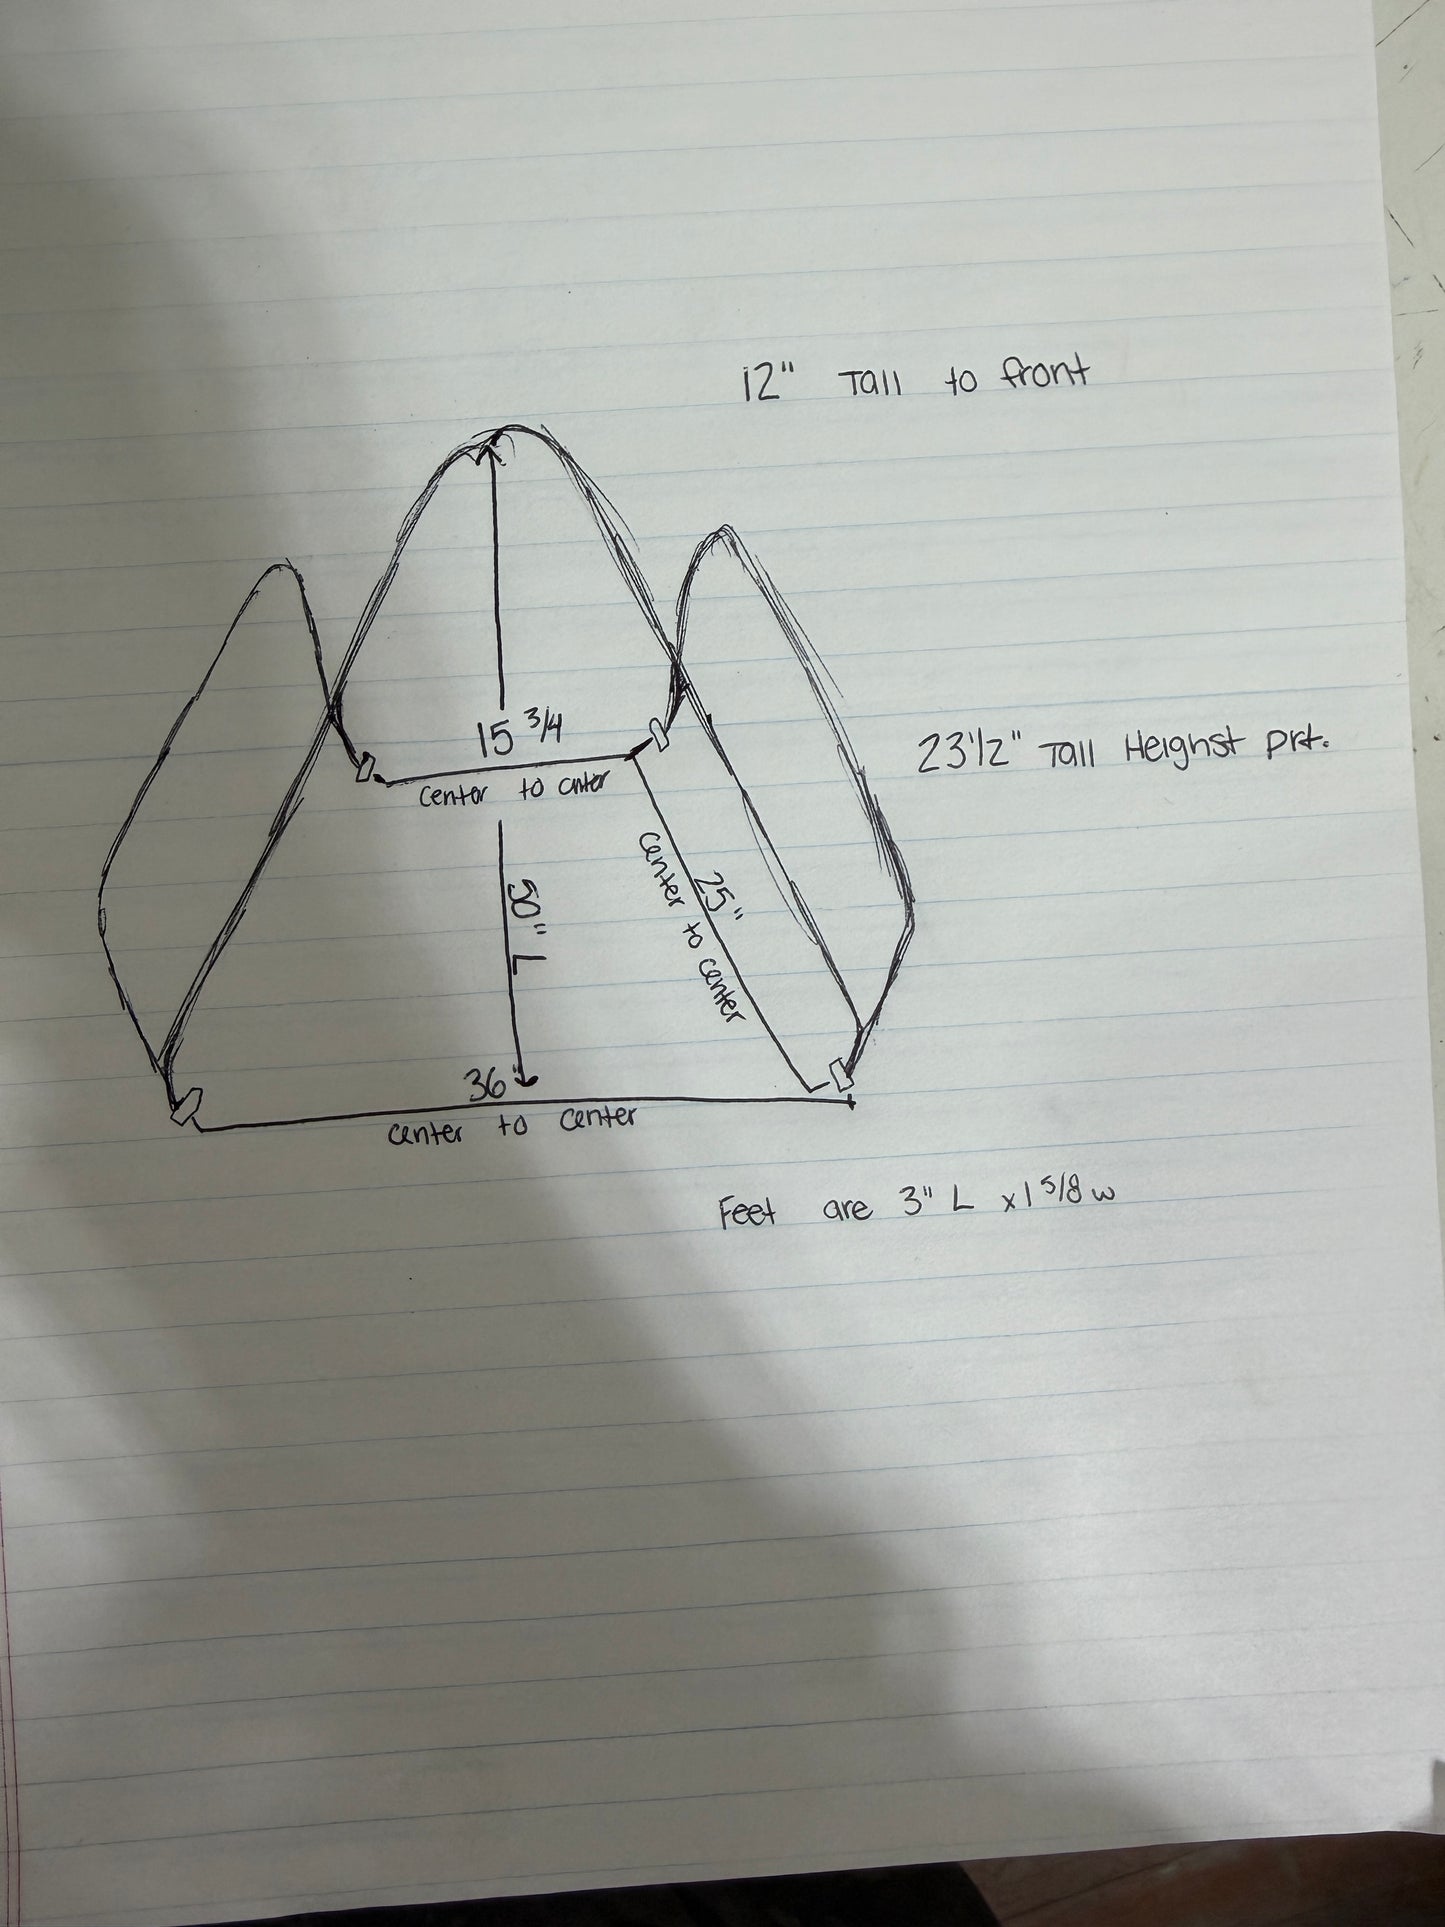 12" Tall to front
15 3/4
center to cnter
23 1/2" Tall Heighst prt.
50" L
25"
center to center
36"
center to center
Feet are 3" L x 1 5/8 w